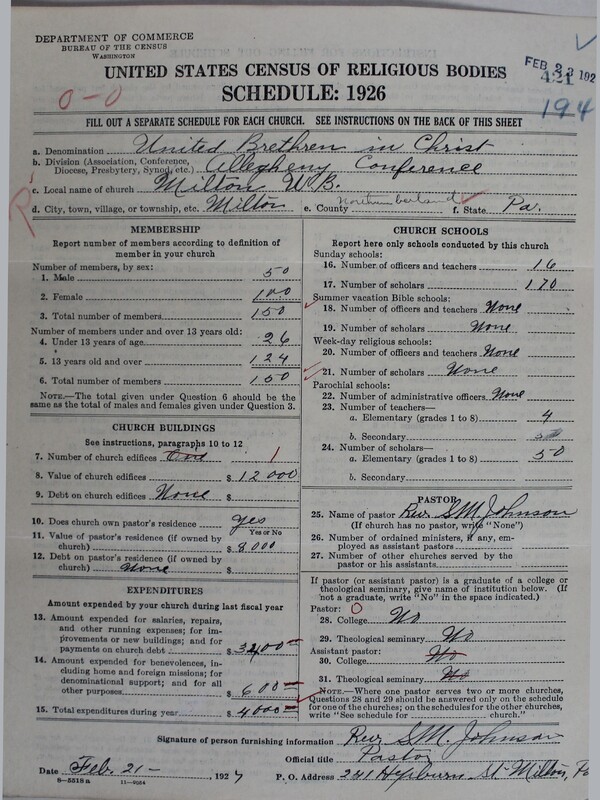 DEPARTMENT OF COMMERCE
BUREAU OF THE CENSUS
WASHINGTON
FEB 23 192
421
UNITED STATES CENSUS OF RELIGIOUS BODIES
SCHEDULE: 1926
0-0
194
FILL OUT A SEPARATE SCHEDULE FOR EACH CHURCH. SEE INSTRUCTIONS ON THE BACK OF THIS SHEET
a. Denomination United Brethren in Christ
b. Division (Association, Conference, Diocese, Presbytery, Synod, etc.) Allegheny Conference
c. Local name of church Milton U.B.
d. City, town, village, or township, etc. Milton e. County Northumberland f. State Pa.
MEMBERSHIP
Report number of members according to definition of
member in your church
Number of members, by sex:
1. Male 50
2. Female 100
3. Total number of members 150
Number of members under and over 13 years old:
4. Under 13 years of age 26
5. 13 years old and over 124
6. Total number of members 150
NOTE.—The total given under Question 6 should be the
same as the total of males and females given under Question 3.
CHURCH BUILDINGS
See instructions, paragraphs 10 to 12
7. Number of church edifices One 1
8. Value of church edifices $12000
9. Debt on church edifices None $
10. Does church own pastor's residence yes
Yes or No
11. Value of pastor's residence (if owned by
church) $8,000
12. Debt on pastor's residence (if owned by
church) None $
EXPENDITURES
Amount expended by your church during last fiscal year
13. Amount expended for salaries, repairs,
and other running expenses; for im-
provements or new buildings; and for
payments on church debt $3400
14. Amount expended for benevolences, in-
cluding home and foreign missions; for
denominational support; and for all
other purposes $600
15. Total expenditures during year $4000
CHURCH SCHOOLS
Report here only schools conducted by this church
Sunday schools:
16. Number of officers and teachers 16
17. Number of scholars 170
Summer vacation Bible schools:
18. Number of officers and teachers None
19. Number of scholars None
Week-day religious schools:
20. Number of officers and teachers None
21. Number of scholars None
Parochial schools:
22. Number of administrative officers None
23. Number of teachers—
a. Elementary (grades 1 to 8) 4
b. Secondary
24. Number of scholars—
a. Elementary (grades 1 to 8) 50
b. Secondary
PASTOR
25. Name of pastor Rev. S.M. Johnson
(If church has no pastor, write "None")
26. Number of ordained ministers, if any, em-
ployed as assistant pastors
27. Number of other churches served by the
pastor or his assistants
If pastor (or assistant pastor) is a graduate of a college or
theological seminary, give name of institution below. (If
not a graduate, write "No" in the space indicated.)
Pastor: O
28. College No
29. Theological seminary No
Assistant pastor:
30. College No
31. Theological seminary No
NOTE.—Where one pastor serves two or more churches,
Questions 28 and 29 should be answered only on the schedule
for one of the churches; on the schedules for the other churches,
write "See schedule for ______ church."
Signature of person furnishing information Rev. S.M. Johnson
Official title Pastor
Date Feb. 21 -, 1927 P. O. Address 241 Hepburn St. Milton, Pa
8-5518 a 11-9584